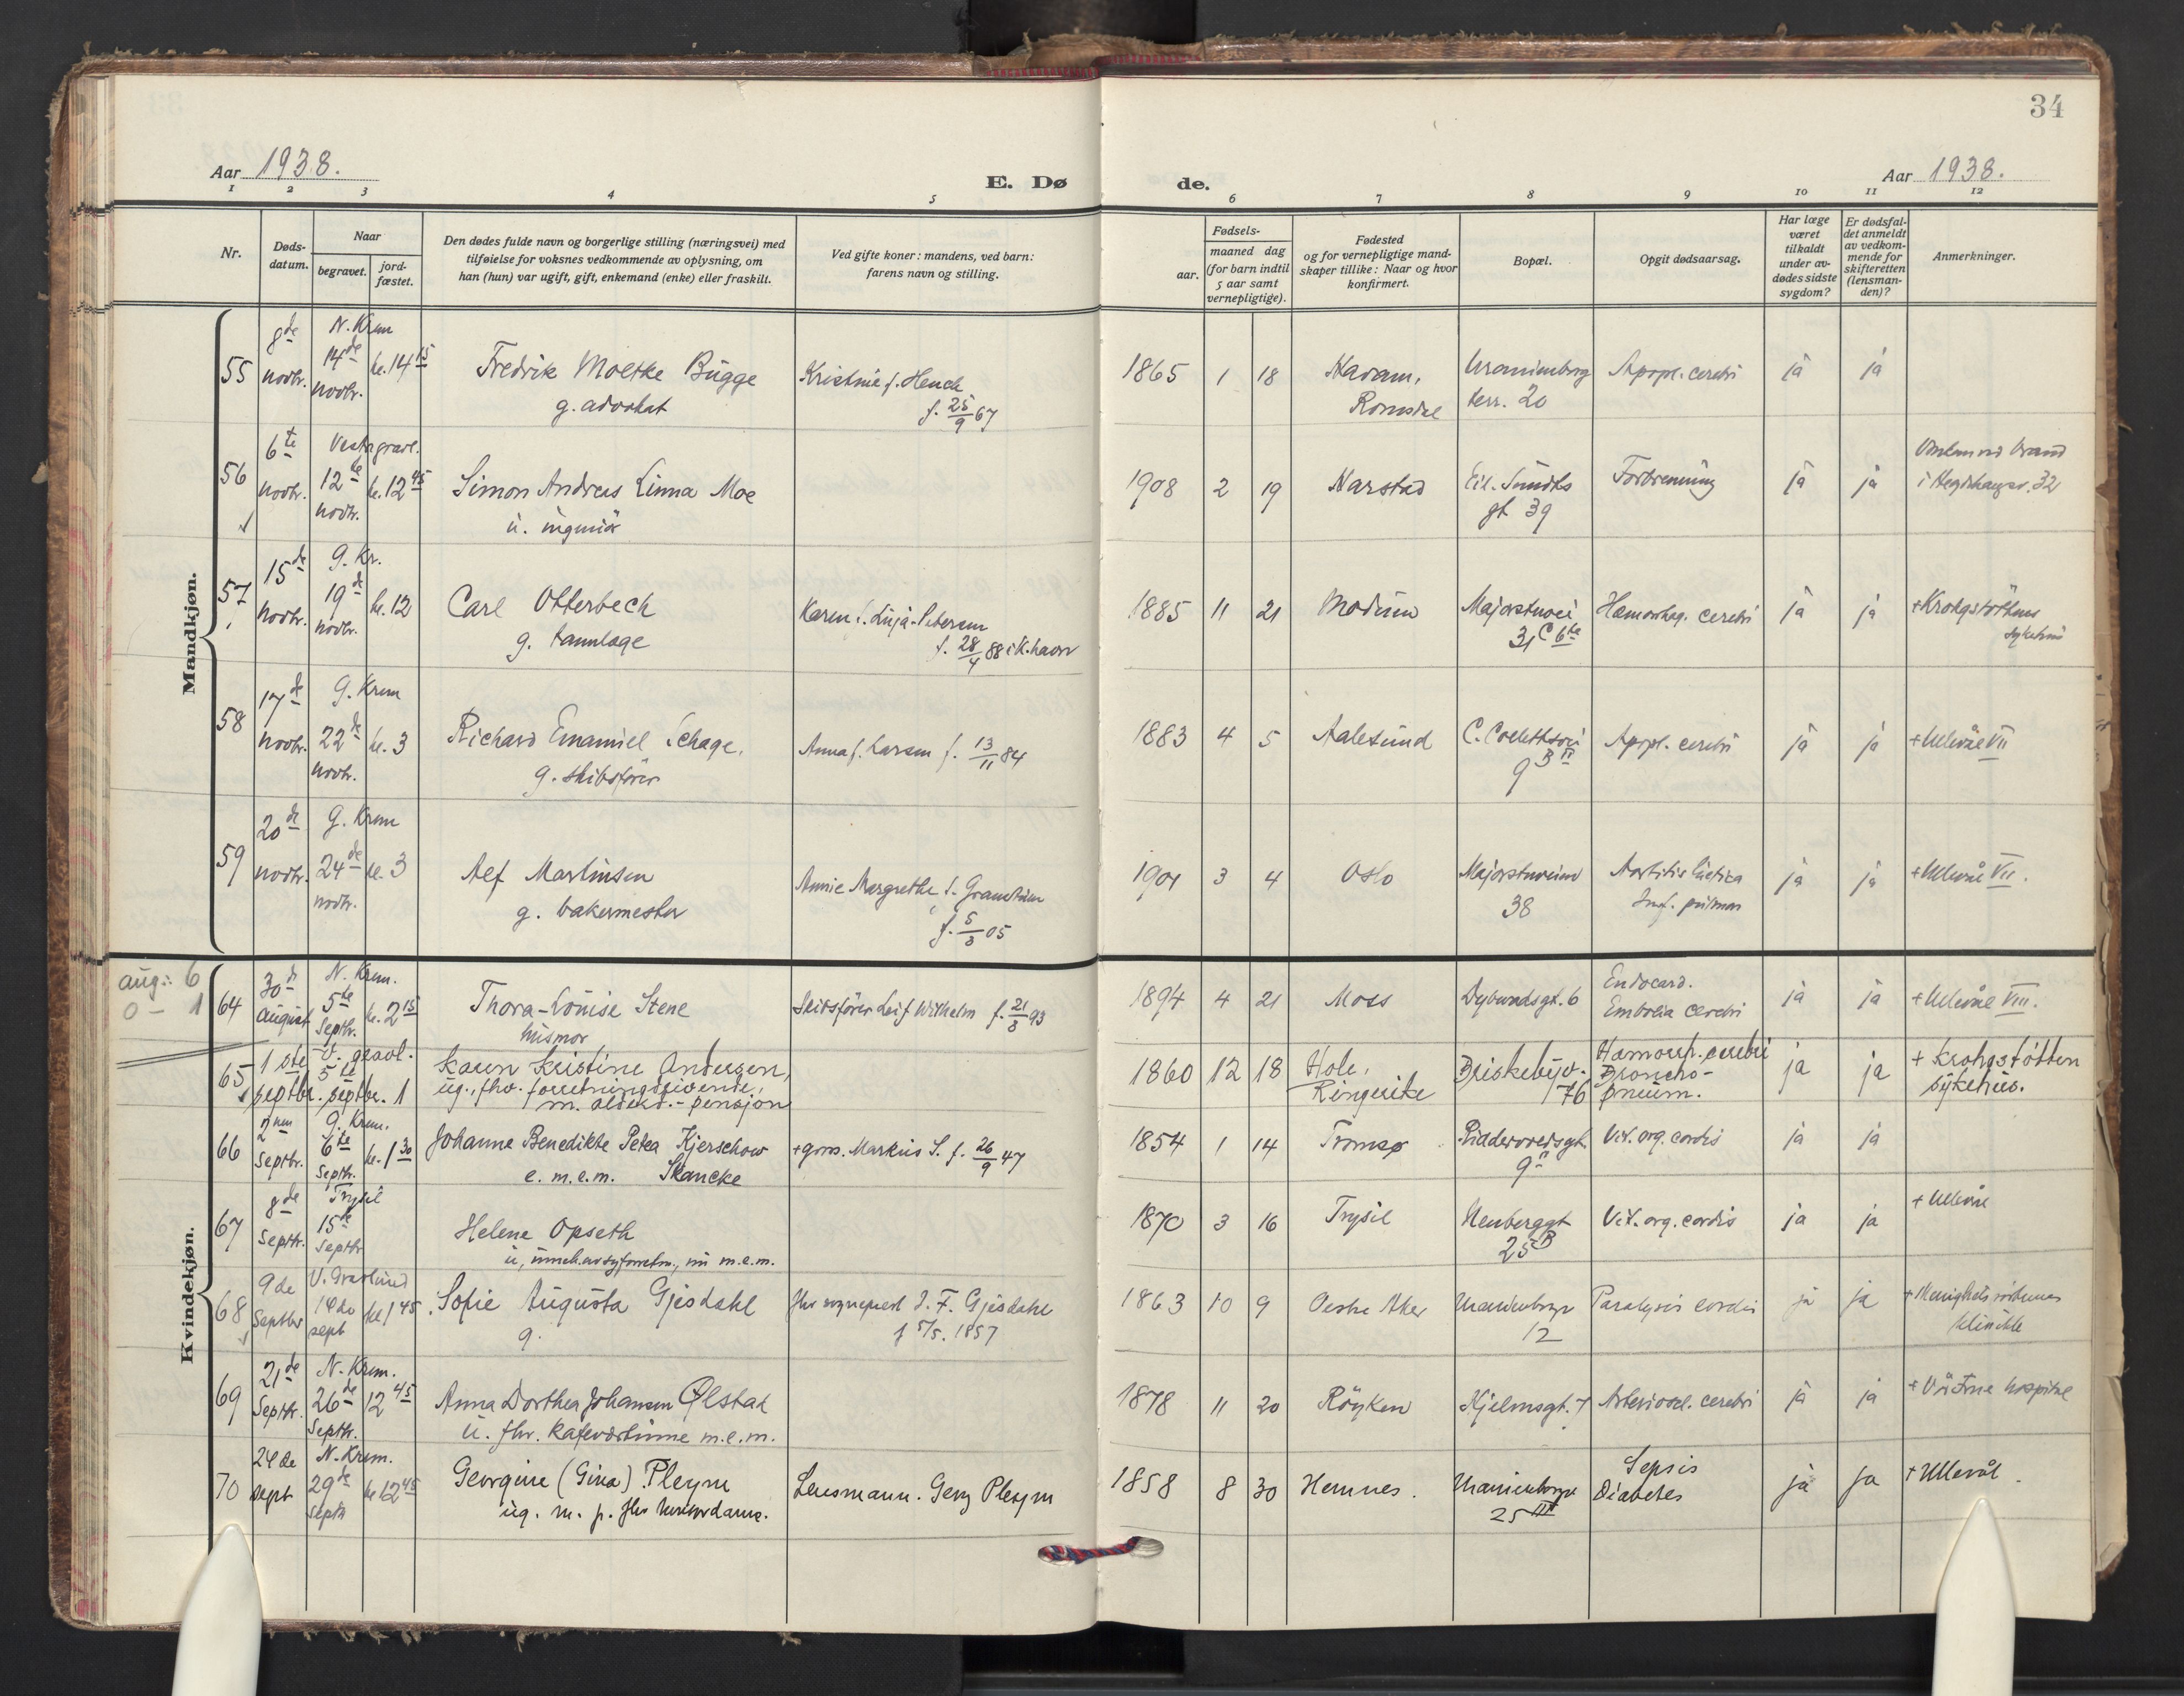 34
Aar 1938.
E. Dø
de.
Aar 1938.
1 2 3 4 5 6 7 8 9 10 11 12
Nr.
Døds-
datum.
Naar
begravet.
jord-
fæstet.
Den dødes fulde navn og borgerlige stilling (næringsvei) med
tilføielse for voksnes vedkommende av oplysning, om
han (hun) var ugift, gift, enkemand (enke) eller fraskilt.
Ved gifte koner: mandens, ved barn:
farens navn og stilling.
Fødsels-
aar.
maaned dag
(for barn indtil
5 aar samt
vernepligtige).
Fødested
og for vernepligtige mand-
skaper tillike: Naar og hvor
konfirmert.
Bopæl.
Opgit dødsaarsag.
Har læge
været
tilkaldt
under av-
dødes sidste
sygdom?
Er dødsfal-
det anmeldt
av vedkom-
mende for
skifteretten
(lensman-
den)?
Anmerkninger.
Mandkjøn.
55
8de
novbr.
N. Krem
14de
novbr.
kl. 14 15
Fredrik Moltke Bugge
g. advokat
Kristine f. Hench
f. 25/9 67
1865 1 18
Haram,
Romsdal
Uranienborg
terr. 20
Apopl. cerebri
ja ja
56
6te
novbr.
Vestre gravl.
12te
novbr.
kl. 12 45
Simon Andreas Linna Moe
u. ingeniør
1908 2 19
Harstad
Eil. Sundts
gt 39
Forbrenning
ja ja
Omkom ved brand
i Hegdehaugsv. 32
57
15de
novbr.
G. Kr.
19de
novbr.
kl. 12
Carl Otterbech
g. tannlæge
Karen f. Linja-Petersen
f. 28/4 88 i K.havn
1885 11 21
Modum
Majorstuvei
31 C 6te
Hæmorrhag. cerebri
ja ja
+ Krohgstøttens
sykehus
58
17de
novbr.
G. Krem
22de
novbr.
kl. 3
Richard Emanuel Schage.
g. skibsfører
Anna f. Larsen f. 13/11 84
1883 4 5
Aalesund
C. Collettsvei
9 B II
Apopl. cerebri
ja ja
+ Ullevål VII
59
20de
novbr.
G. Krem
24de
novbr.
kl. 3
Alf Martinsen
g. bakermester
Annie Margrethe f.
f. 5/3 05
1901 3 4
Oslo
Majorstuveien
38
Aortitis luetica
Inf. pulmon
ja ja
+ Ullevål VII.
Kvindekjøn.
aug: 6
0 - 1
64
30de
august
N. Krem.
5te
septbr.
kl. 2 15
Thora-Louise Stene
husmor
Skibsfører Leif Wilhelm f. 21/3 93
1894 4 21
Moss
Dybwadsgt. 6
Endocard.
Embolia cerebri
ja ja
+ Ullevål VIII.
65
1ste
septbr.
V. gravl.
5te
septbr. 1
Karen Kristine Andersen,
ug., fhv. forretningsdrivende,
m. alderd.-pensjon
1860 12 18
Hole,
Ringerike
Briskebyv.
76
Hæmorrh. cerebri
Broncho-
pneum.
ja ja
+ Krohgstøtten
sykehus.
66
2nen
septbr.
G. Krem.
6te
septbr.
kl. 1 30
Johanne Benedikte Petra Kjerschow
e. m.e.m. Skancke
+ gros. Markus S. f. 26/9 47
1854 1 14
Tromsø
Riddervoldsgt.
9 II
Vit. org. cordis
ja ja
67
8de
septbr.
Trysil
15de
septbr
Helene Opseth
u, m.e.m.
1870 3 16
Trysil
Neuberggt
25 B
Vit. org. cordis
ja ja
+ Ullevål
68
9de
septbr
V. Gravlund
14de
sept
kl 1 45
Sofie Augusta Gjesdahl
g.
fhv sogneprest J. F. Gjesdahl
f 5/5. 1857
1863 10 9
Oestre Aker
Uranienborgv
12
Paralysis cordis
ja ja
+ Menighetssøstrenes
klinikk
69
21de
septbr.
N. Krem.
26de
septbr.
12 45
Anna Dorthea Johansen Ølstad
u. fhv. kafeværtinne m.e.m.
1878 11 20
Røyken
Hjelmsgt. 7
Arterioscl. cerebri
ja ja
+ Vår Frue hospital
70
24de
sept
N. Krem.
29de
septbr
kl 12 45
Georgine (Gina) Pleym
ug. m. p. fhv kontordame.
Lensmann. Georg Pleym
1858 8 30
Hemnes.
Uranienborgv
25 III
Sepsis
Diabetes
ja ja
+ Ullevål.